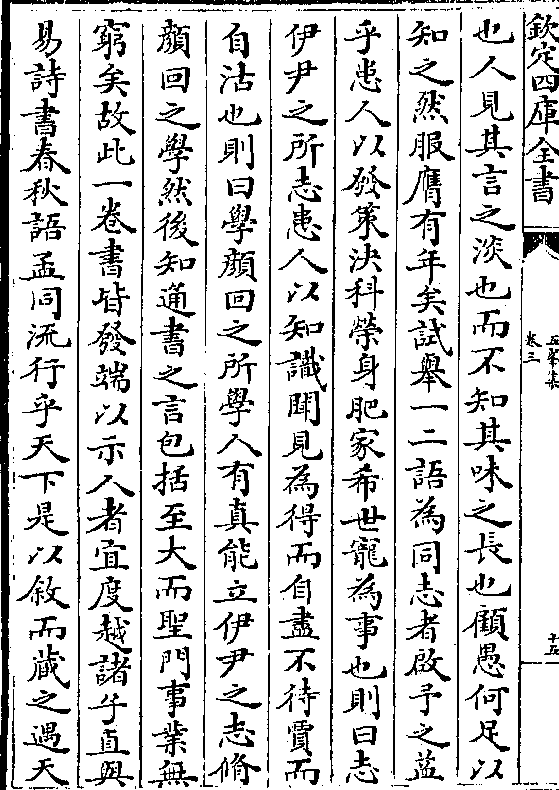 欽定四庫全書
五峯集
卷三
十五
也人見其言之淡也而不知其味之長也顧愚何足以
知之然服膺有年矣試舉一二語為同志者啟予之益
乎患人以發策決科榮身肥家希世寵為事也則曰志
伊尹之所志患人以知識聞見為得而自盡不待賈而
自沽也則曰學顔回之所學人有真能立伊尹之志脩
顔回之學然後知通書之言包括至大而聖門事業無
窮矣故此一卷書皆發端以示人者宜度越諸子直與
易詩書春秋語孟同流行乎天下是以敘而藏之遇天